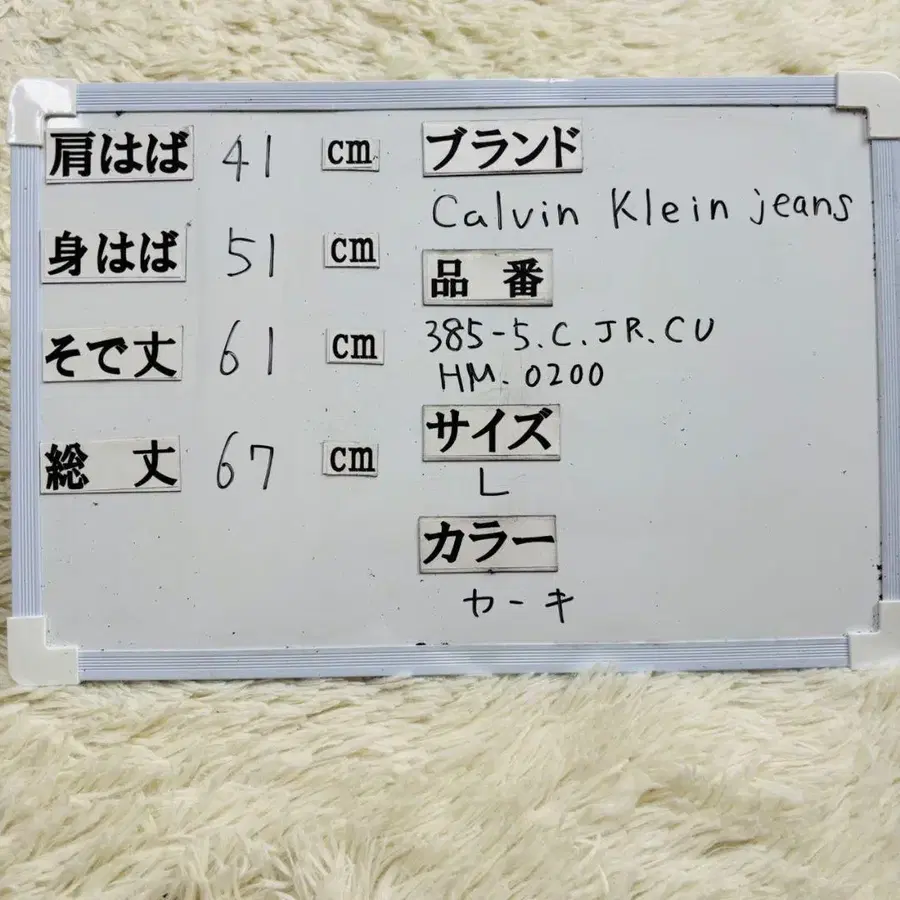 肩はば 41 cm
身はば 51 cm
そで丈 61 cm
総 丈 67 cm
ブランド
Calvin Klein jeans
品 番
385-5.C.JR.CU
HM.0200
サイズ
L
カラー
カーキ